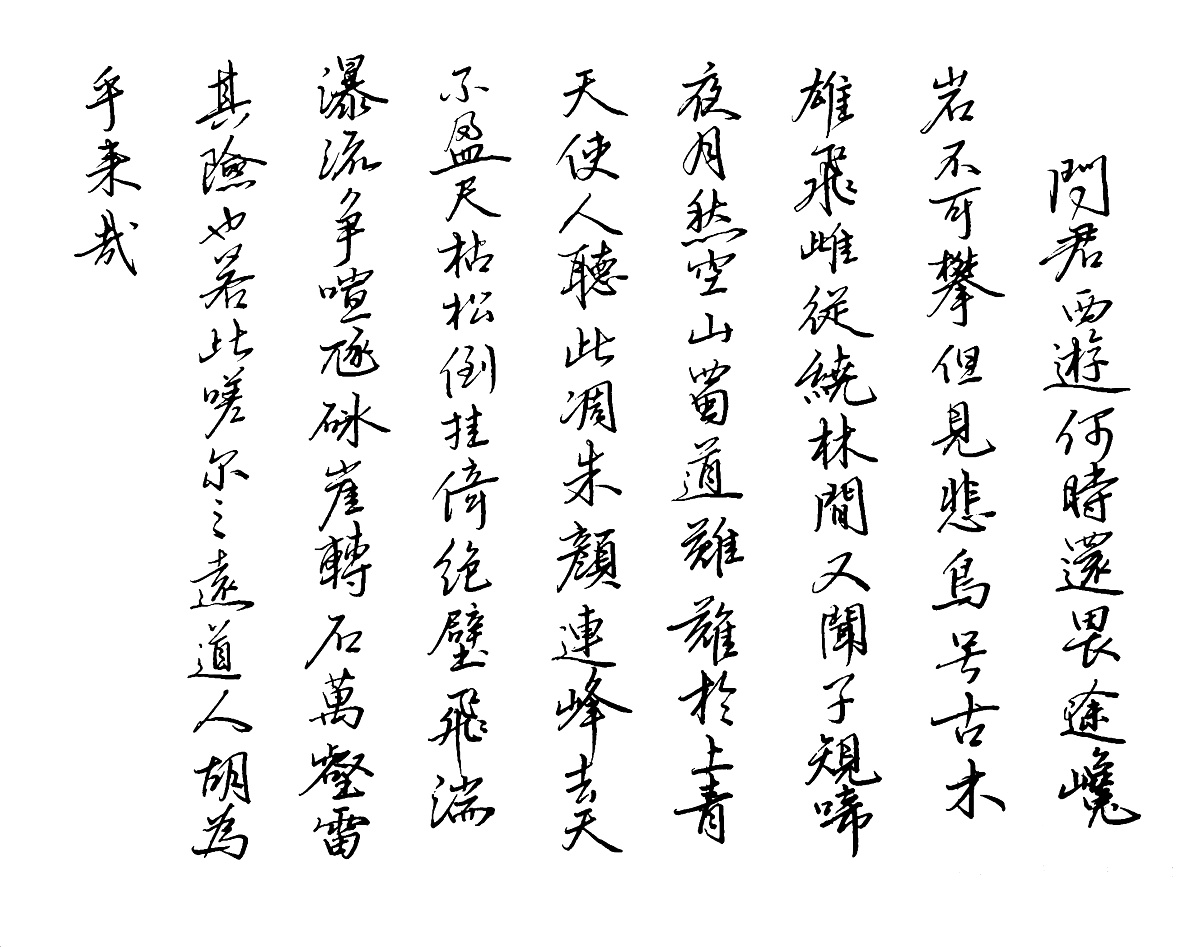 問君西遊何時還畏途巉
岩不可攀但見悲鳥号古木
雄飛雌從繞林間又聞子規啼
夜月愁空山蜀道難難於上青
天使人聽此凋朱顏連峰去天
不盈尺枯松倒挂倚絶壁飛湍
瀑流争喧豗砯崖轉石萬壑雷
其險也若此嗟尔之遠道人胡為
乎来哉